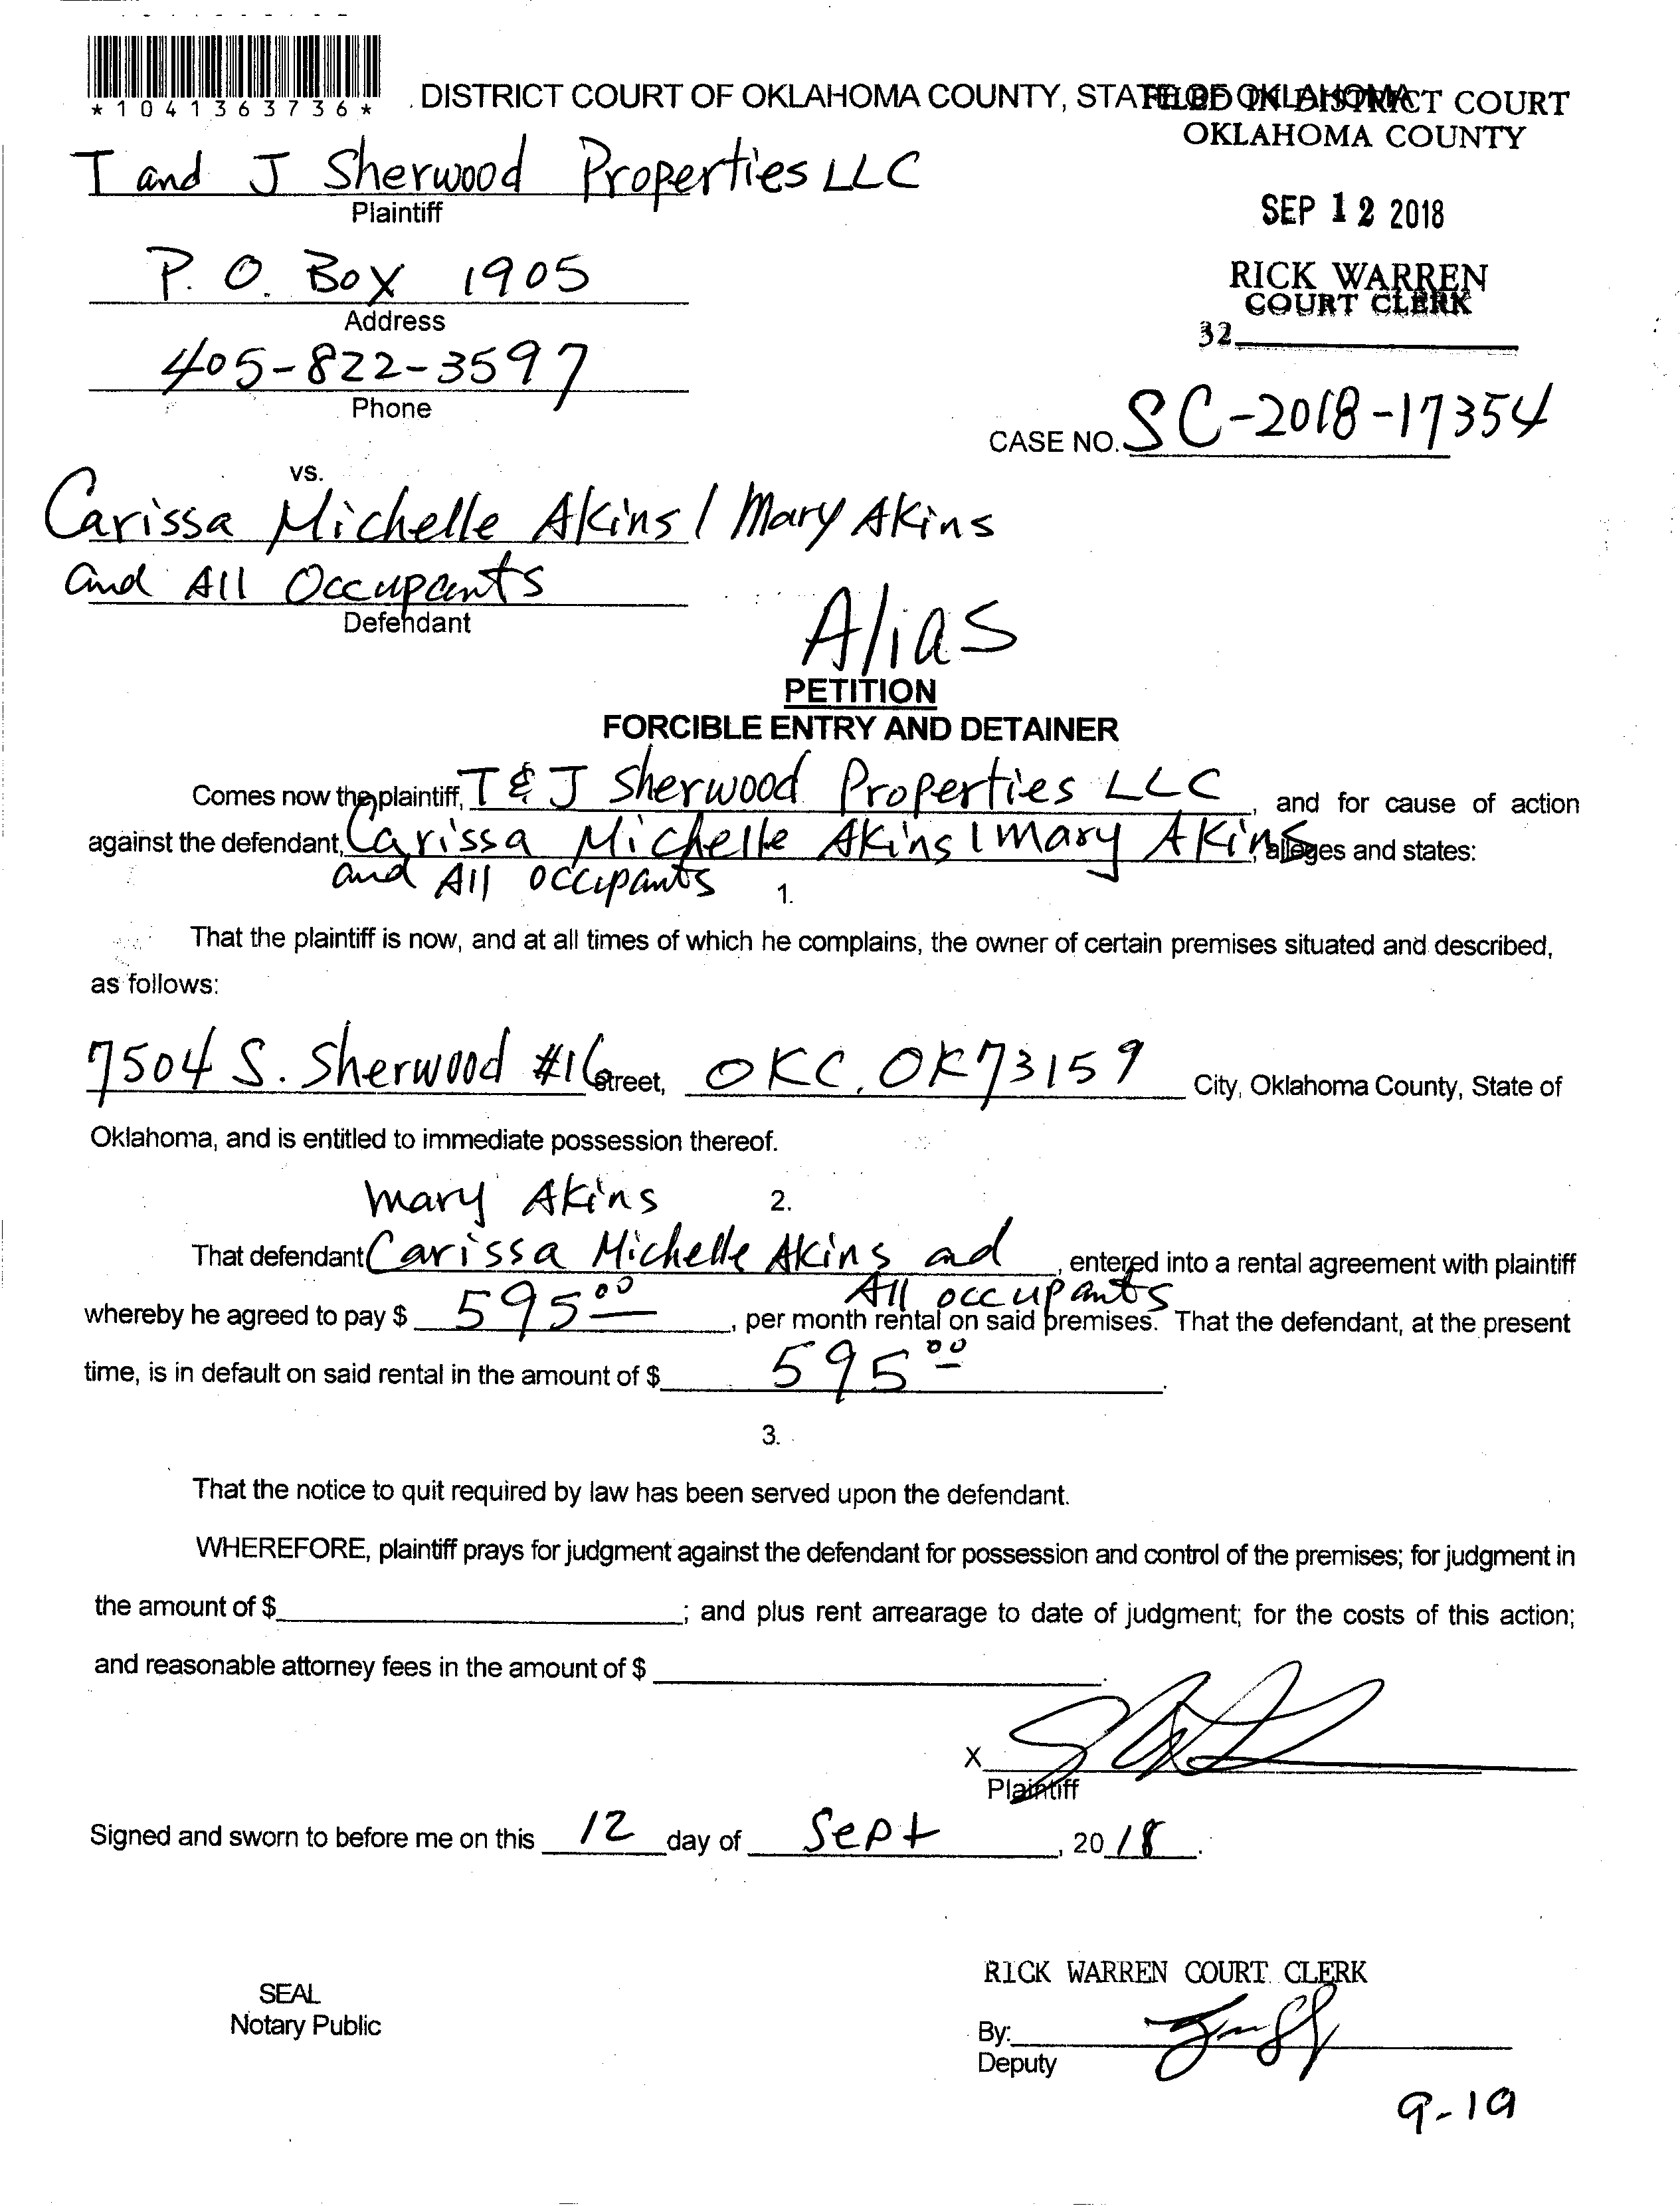 *1041363736*
DISTRICT COURT OF OKLAHOMA COUNTY, STATE OF OKLAHOMA
FILED IN DISTRICT COURT
OKLAHOMA COUNTY
T and J Sherwood Properties LLC
Plaintiff
SEP 12 2018
P. O. Box 1905
Address
RICK WARREN
COURT CLERK
32
405-822-3597
Phone
CASE NO. SC-2018-17354
vs.
Carissa Michelle Akins / Mary Akins
and All Occupants
Defendant
Alias
PETITION
FORCIBLE ENTRY AND DETAINER
Comes now the plaintiff, T & J Sherwood Properties LLC, and for cause of action
against the defendant, Carissa Michelle Akins / Mary Akins, alleges and states:
and All occupants
1.
That the plaintiff is now, and at all times of which he complains, the owner of certain premises situated and described,
as follows:
7504 S. Sherwood #16 Street, OKC, OK 73159 City, Oklahoma County, State of
Oklahoma, and is entitled to immediate possession thereof.
Mary Akins 2.
That defendant Carissa Michelle Akins ad, entered into a rental agreement with plaintiff
All occupants
whereby he agreed to pay $ 595 00, per month rental on said premises. That the defendant, at the present
time, is in default on said rental in the amount of $ 595 00.
3.
That the notice to quit required by law has been served upon the defendant.
WHEREFORE, plaintiff prays for judgment against the defendant for possession and control of the premises; for judgment in
the amount of $; and plus rent arrearage to date of judgment; for the costs of this action;
and reasonable attorney fees in the amount of $.
X
Plaintiff
Signed and sworn to before me on this 12 day of Sept, 2018.
RICK WARREN COURT CLERK
SEAL
Notary Public
By:
Deputy
9-19